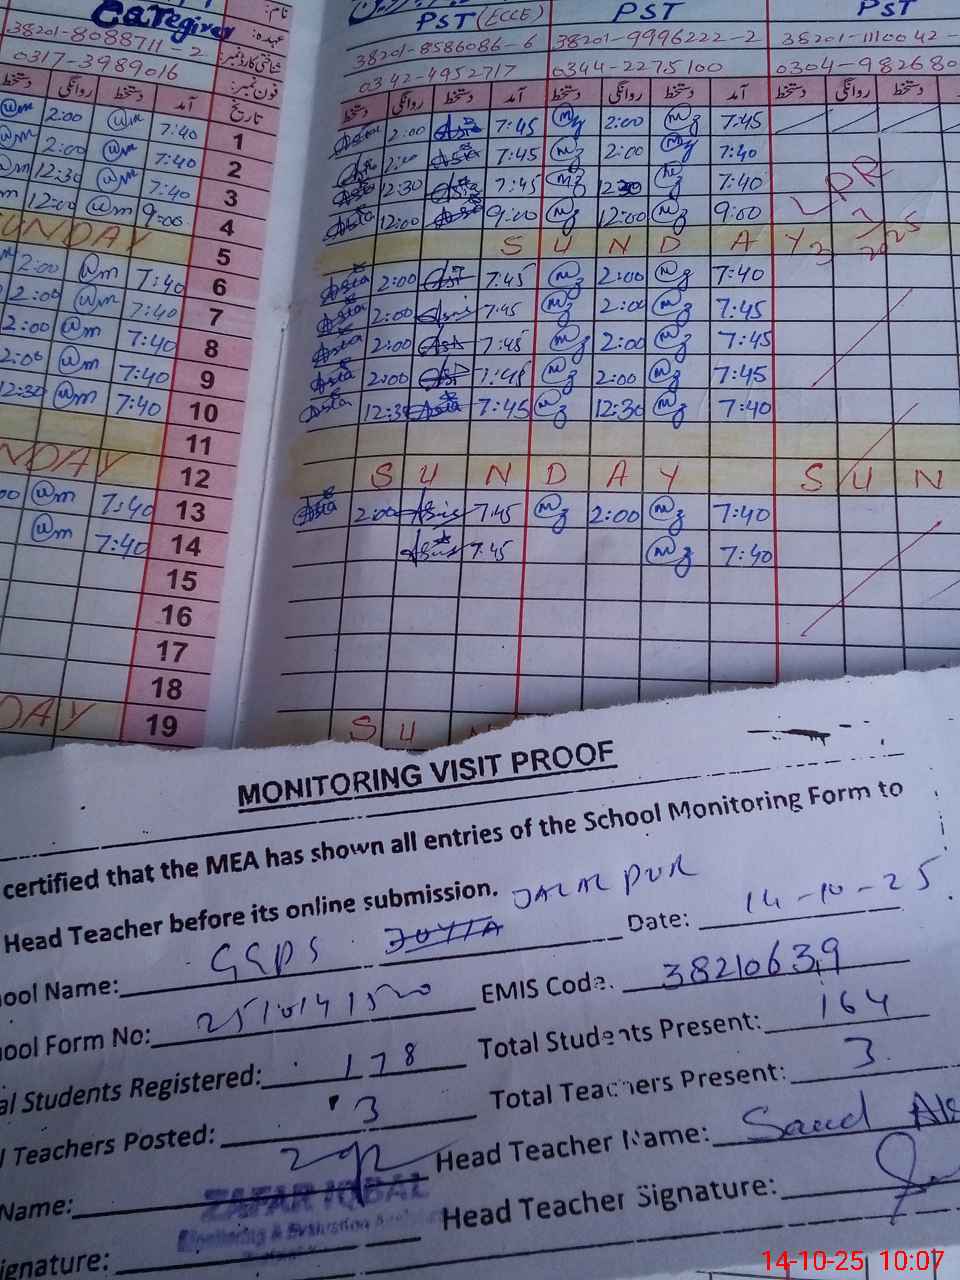 Caregiver عہدہ: PST (ECCE) PST PST
38201-8088711-2 شناختی کارڈ نمبر: 38201-8586086-6 38201-9996222-2 38201-1110042-
0317-3989016 فون نمبر: 0342-4952717 0344-2275100 0304-982680
دستخط روانگی دستخط آمد تاریخ دستخط روانگی دستخط آمد دستخط روانگی دستخط آمد دستخط روانگی دستخط
@m 2:00 @m 7:40 1 Asia 2:00 Asia 7:45 Mz 2:00 Mz 7:45
@m 2:00 @m 7:40 2 2:00 Asia 7:45 Mz 2:00 Mz 7:40
@m 12:30 @m 7:40 3 Asia 12:30 Asia 7:45 Mz 12:30 Mz 7:40 LPR
m 12:00 @m 9:00 4 Asia 12:00 Asia 9:00 Mz 12:00 Mz 9:00
UNDAY 5 S U N D A Y
2:00 @m 7:40 6 Asia 2:00 7:45 Mz 2:00 Mz 7:40
2:00 @m 7:40 7 Asia 2:00 Asia 7:45 Mz 2:00 Mz 7:45
2:00 @m 7:40 8 Asia 2:00 7:45 Mz 2:00 Mz 7:45
2:00 @m 7:40 9 Asia 2:00 7:45 Mz 2:00 Mz 7:45
12:30 @m 7:40 10 Asia 12:30 Asia 7:45 Mz 12:30 Mz 7:40
11
NDAY 12 S U N D A Y S U N
00 @m 7:40 13 Asia 2:00 Asia 7:45 Mz 2:00 Mz 7:40
@m 7:40 14 Asia 7:45 Mz 7:40
15
16
17
18
DAY 19 S U N
MONITORING VISIT PROOF
certified that the MEA has shown all entries of the School Monitoring Form to
Head Teacher before its online submission. JALAL PUR
ool Name: GGPS JOYIA Date: 14-10-25
ool Form No: 2510141520 EMIS Code. 38210639
al Students Registered: 178 Total Students Present: 164
l Teachers Posted: 3 Total Teachers Present: 3
Name: ZAFAR IQBAL Head Teacher Name: Saud
Monitoring & Evaluation
ignature: Head Teacher Signature:
14-10-25 10:07